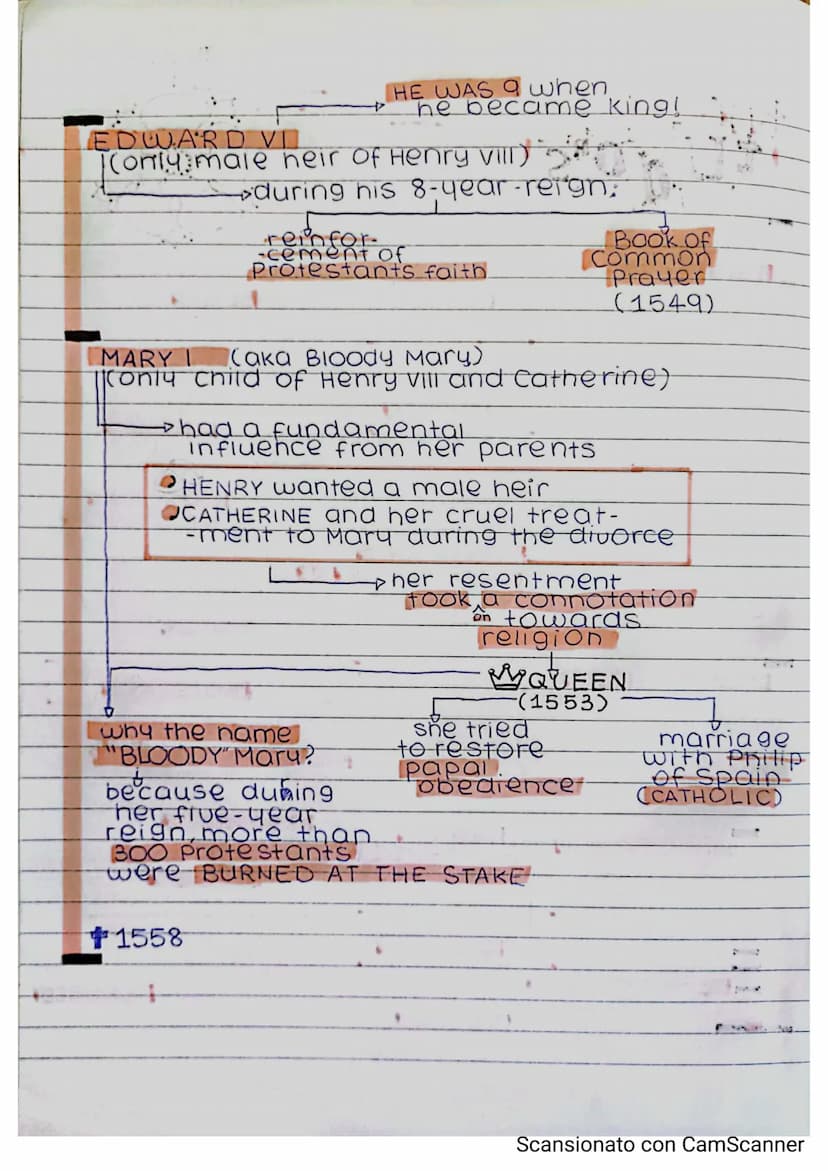 HE WAS 9 when
he became king!
EDWARD VI
(only male heir of Henry VIII)
during his 8-year-reign:
reinfor-
-cement of
Protestants faith
Book of
Common
Prayer
(1549)
MARY I (aka Bloody Mary)
(only child of Henry VIII and Catherine)
had a fundamental
influence from her parents
HENRY wanted a male heir
CATHERINE and her cruel treat-
-ment to Mary during the divorce
her resentment
took a connotation
on towards
religion
QUEEN
(1553)
why the name
"BLOODY" Mary?
because during
her five-year
reign, more than
300 Protestants
were BURNED AT THE STAKE
she tried
to restore
papal
obedience
marriage
with Philip
of Spain
(CATHOLIC)
✝ 1558
Scansionato con CamScanner